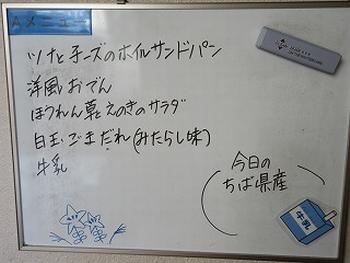 Aメニュー
ツナとチーズのホイルサンドパン
洋風おでん
ほうれん草とえのきのサラダ
白玉ごまだれ(みたらし味)
牛乳
今日の
ちば県産
牛乳